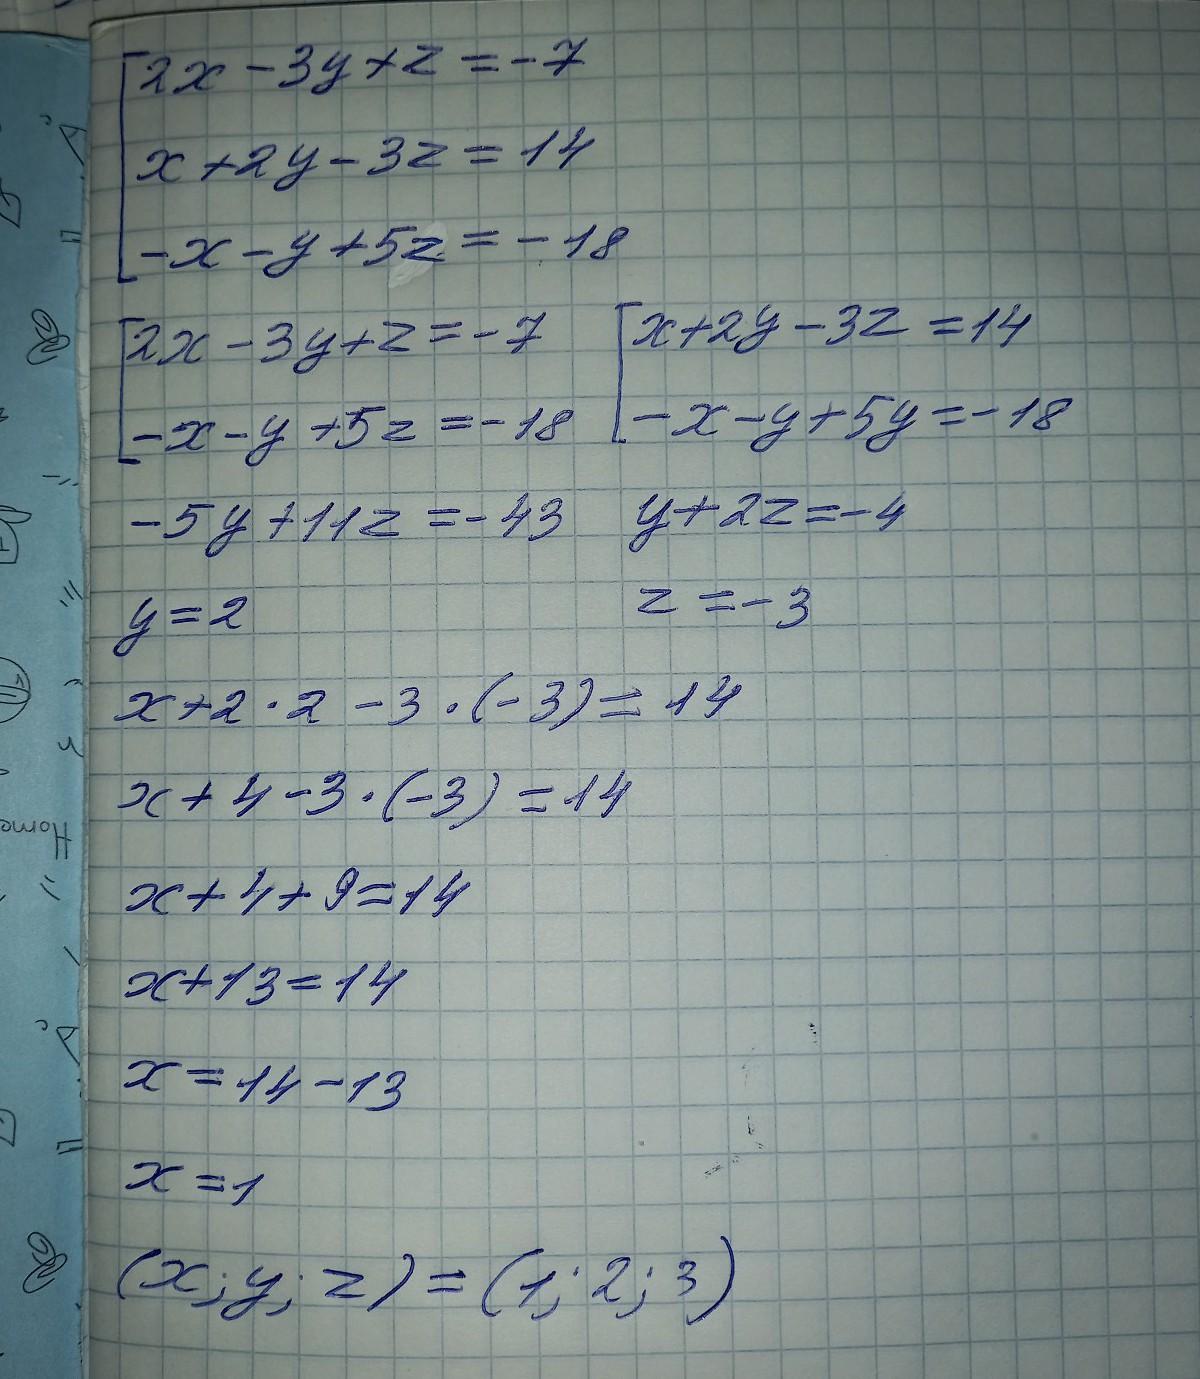 2x-3y+z=-7
x+2y-3z=14
-x-y+5z=-18
2x-3y+z=-7 x+2y-3z=14
-x-y+5z=-18 -x-y+5y=-18
-5y+11z=-43 y+2z=-4
y=2 z=-3
x+2·2-3·(-3)=14
x+4-3·(-3)=14
x+4+9=14
x+13=14
x=14-13
x=1
(x;y;z)=(1;2;3)
Home